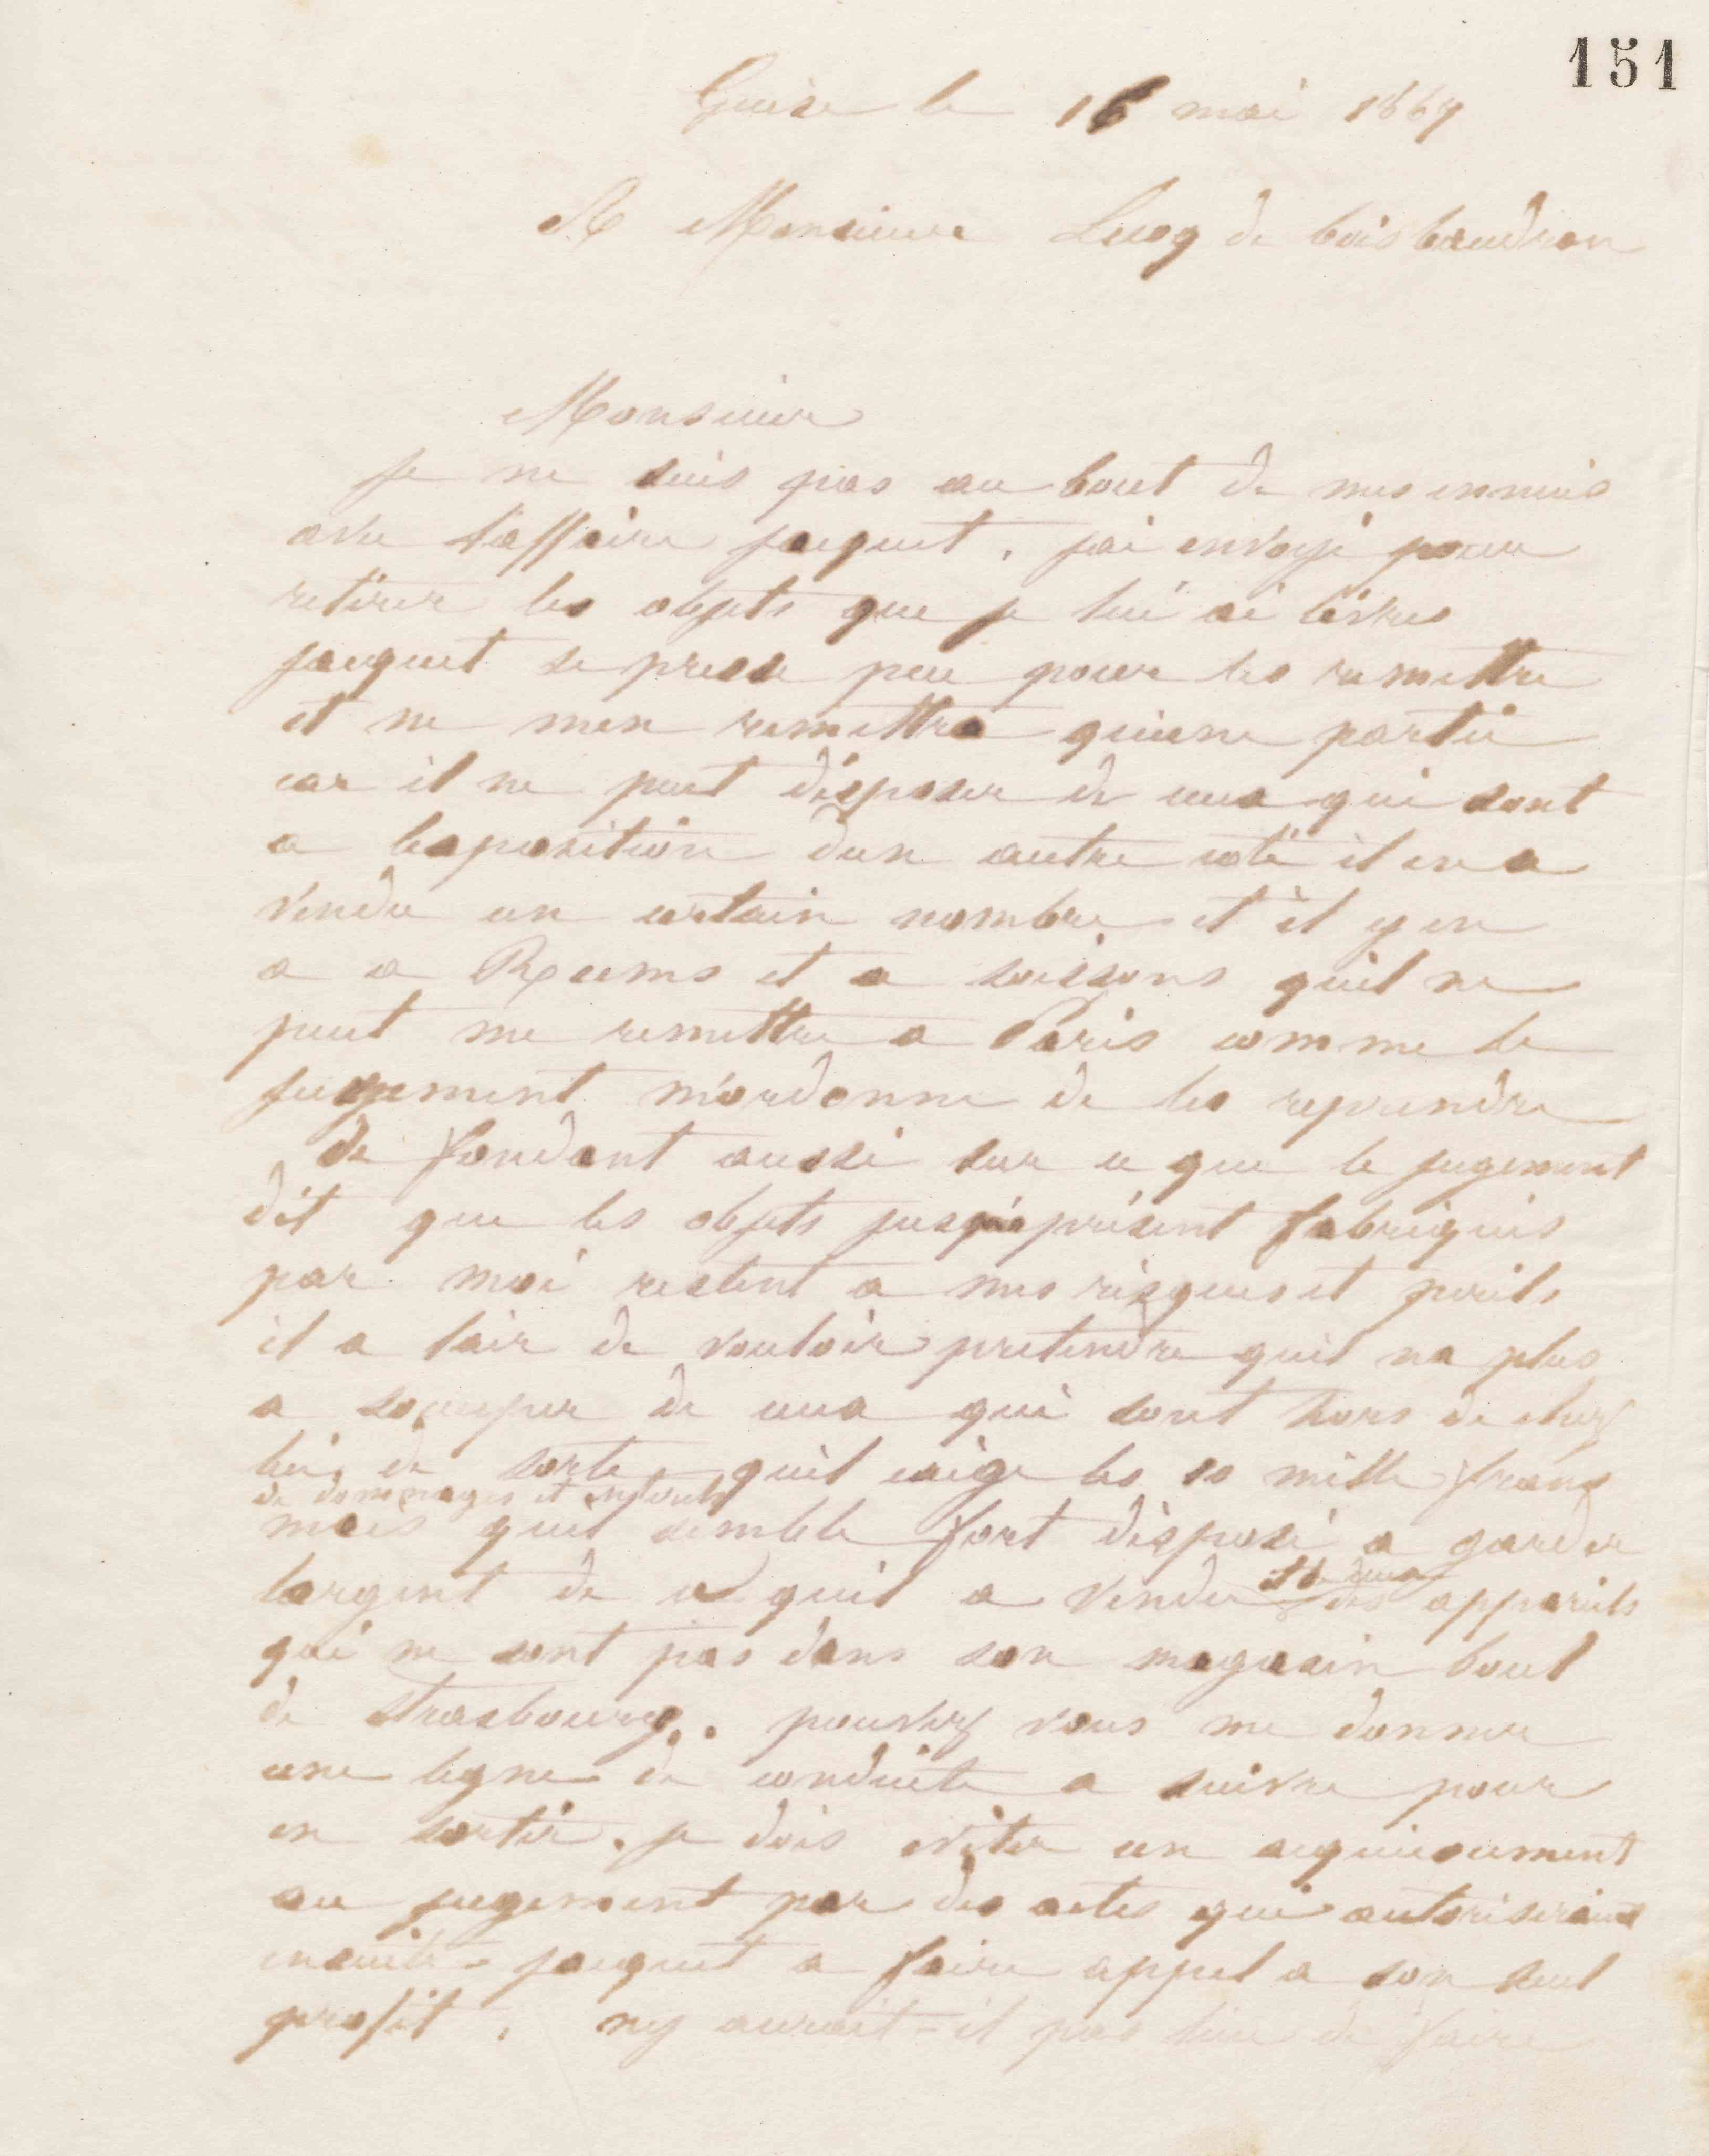 151
Guise le 16 mai 1867
A Monsieur Lecoq de boisbaudran
Monsieur
je ne suis pas au bout de mes ennuis
avec l'affaire jacquet. jai envoyé pour
retirer les objets que je lui ai livrés
jacquet se presse peu pour les remettre
et ne men remettra quune partie
car il ne peut disposer de ceux qui sont
a lexposition dun autre coté il en a
vendu un certain nombre et il y en
a a Reims et a soissons quil ne
peut me remettre a Paris comme le
jugement m'ordonne de les reprendre
Se fondant aussi sur ce que le jugement
dit que les objets jusqu'aprésent fabriqués
par moi restent a mes risques et perils
il a lair de vouloir pretendre quil na plus
a soccuper de ceux qui sont hors de chez
lui, de sorte quil exige les 10 mille francs
de dommages et intérêts
mais quil semble fort disposé a garder
largent de ce quil a vendu et de ceux des appareils
qui ne sont pas dans son magasin boul
de Strasbourg. pouvez vous me donner
une ligne de conduite a suivre pour
en sortir. je dois eviter un acquiescement
au jugement par des actes qui autoriseraient
ensuite jacquet a faire appel a son seul
profit. ny aurait-il pas lieu de faire